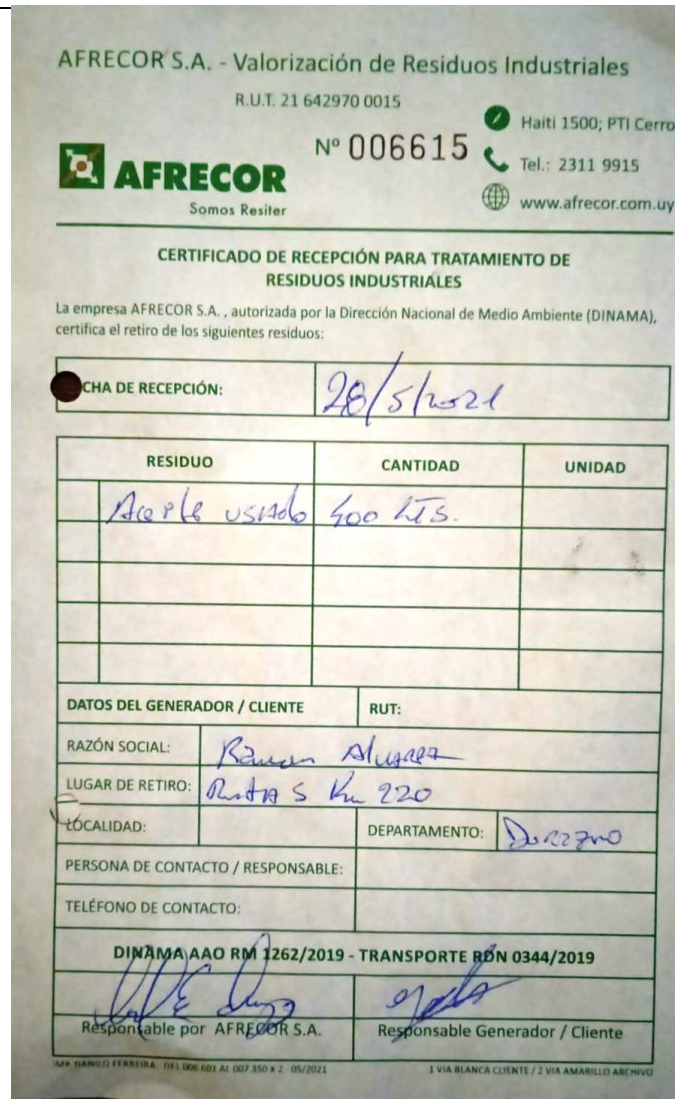 AFRECOR S.A. - Valorización de Residuos Industriales
R.U.T. 21 642970 0015
Haiti 1500; PTI Cerro
Nº 006615
Tel.: 2311 9915
AFRECOR
www.afrecor.com.uy
Somos Resiter
CERTIFICADO DE RECEPCIÓN PARA TRATAMIENTO DE
RESIDUOS INDUSTRIALES
La empresa AFRECOR S.A. , autorizada por la Dirección Nacional de Medio Ambiente (DINAMA),
certifica el retiro de los siguientes residuos:
CHA DE RECEPCIÓN: 28/5/2021
RESIDUO CANTIDAD UNIDAD
Aceite usado 400 LTS.
DATOS DEL GENERADOR / CLIENTE RUT:
RAZÓN SOCIAL: Ramon Alvarez
LUGAR DE RETIRO: Ruta 5 Km 220
LOCALIDAD: DEPARTAMENTO: Durazno
PERSONA DE CONTACTO / RESPONSABLE:
TELÉFONO DE CONTACTO:
DINAMA AAO RM 1262/2019 - TRANSPORTE RDN 0344/2019
Responsable por AFRECOR S.A. Responsable Generador / Cliente
IMP. DANILO FERREIRA DEL 006.601 AL 007.350 x 2 05/2021 1 VIA BLANCA CLIENTE / 2 VIA AMARILLO ARCHIVO